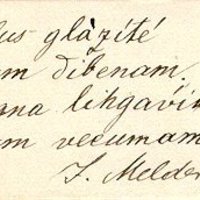 us glāzītē
m dibenam.
ana līhgavi
m vecumam
J. Melder